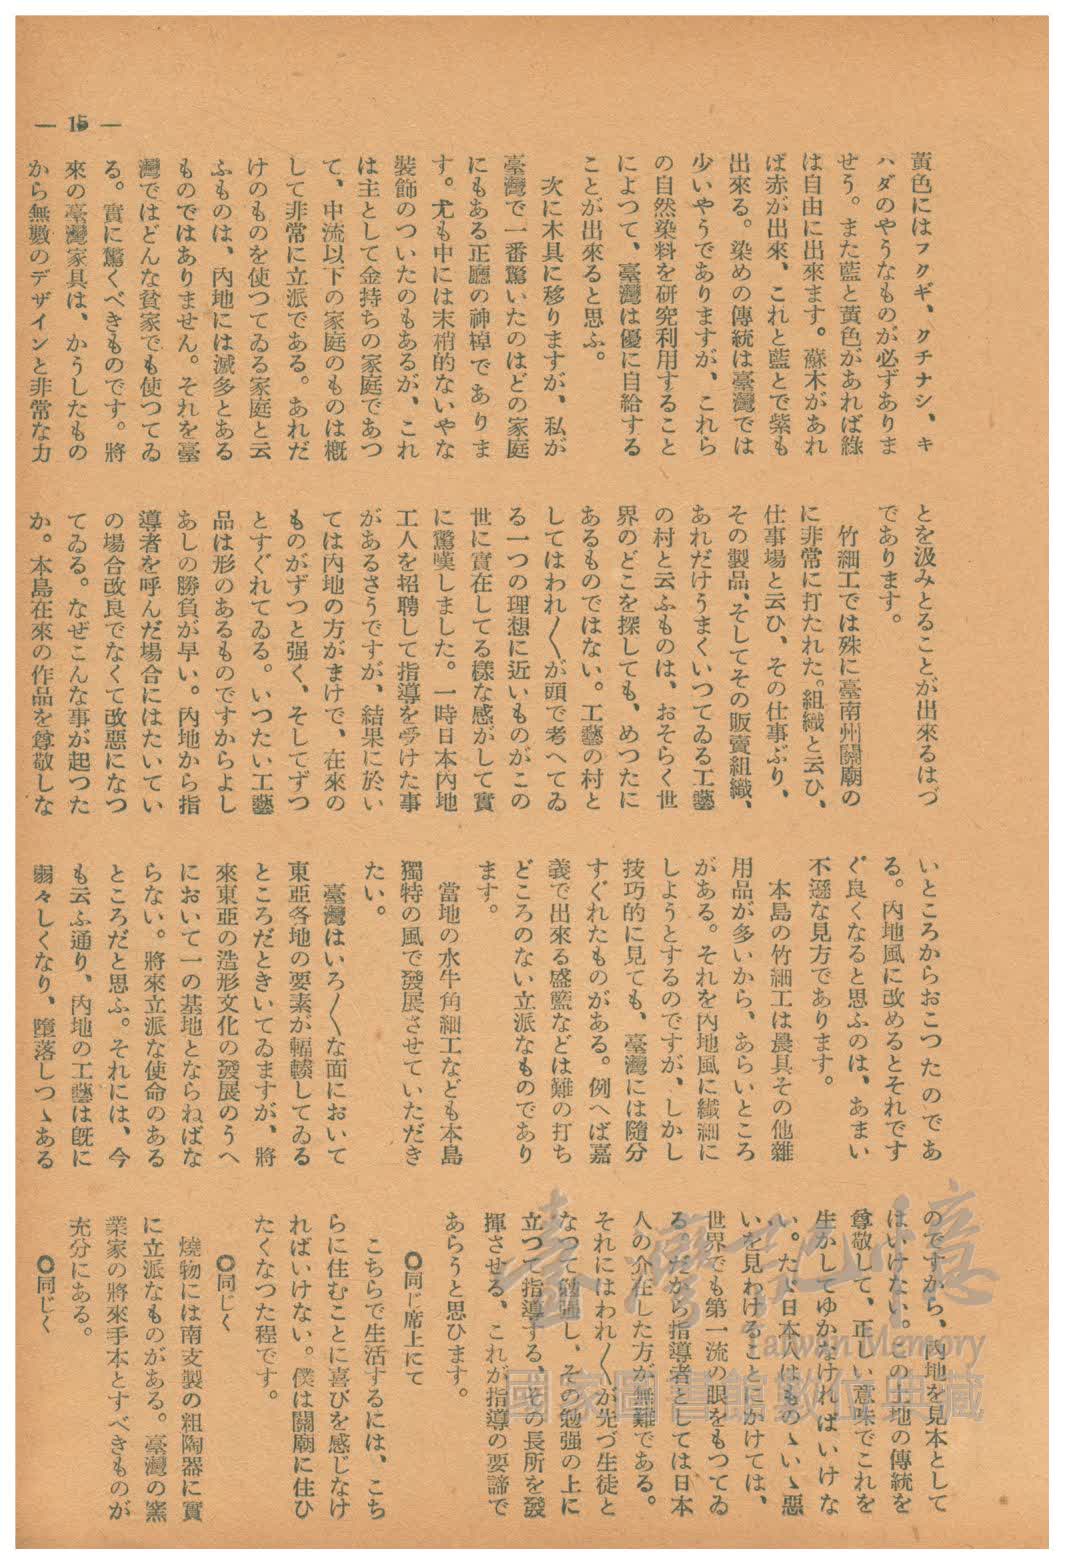 — 15 —
黃色にはフクギ、クチナシ、キ
ハダのやうなものが必ずありま
せう。また藍と黃色があれば綠
は自由に出來ます。蘇木があれ
ば赤が出來、これと藍とで紫も
出來る。染めの傳統は臺灣では
少いやうでありますが、これら
の自然染料を硏究利用すること
によつて、臺灣は優に自給する
ことが出來ると思ふ。
次に木具に移りますが、私が
臺灣で一番驚いたのはどの家庭
にもある正廳の神棹でありま
す。尤も中には末梢的ないやな
裝飾のついたのもあるが、これ
は主として金持ちの家庭であつ
て、中流以下の家庭のものは槪
して非常に立派である。あれだ
けのものを使つてゐる家庭と云
ふものは、內地には滅多とある
ものではありません。それを臺
灣ではどんな貧家でも使つてゐ
る。實に驚くべきものです。將
來の臺灣家具は、かうしたもの
から無數のデザインと非常な力
とを汲みとることが出來るはづ
であります。
竹細工では殊に臺南州關廟の
に非常に打たれた。組織と云ひ、
仕事場と云ひ、その仕事ぶり、
その製品、そしてその販賣組織、
あれだけうまくいつてゐる工藝
の村と云ふものは、おそらく世
界のどこを探しても、めつたに
あるものではない。工藝の村と
してはわれ〱が頭で考へてゐ
る一つの理想に近いものがこの
世に實在してる樣な感がして實
に驚嘆しました。一時日本內地
工人を招聘して指導を受けた事
があるさうですが、結果に於い
ては內地の方がまけで、在來の
ものがずつと强く、そしてずつ
とすぐれてゐる。いつたい工藝
品は形のあるものですからよし
あしの勝負が早い。內地から指
導者を呼んだ場合にはたいてい
の場合改良でなくて改惡になつ
てゐる。なぜこんな事が起つた
か。本島在來の作品を尊敬しな
いところからおこつたのであ
る。內地風に改めるとそれです
ぐ良くなると思ふのは、あまい
不遜な見方であります。
本島の竹細工は農具その他雜
用品が多いから、あらいところ
がある。それを內地風に纎細に
しようとするのですが、しかし
技巧的に見ても、臺灣には隨分
すぐれたものがある。例へば嘉
義で出來る盛籃などは難の打ち
どころのない立派なものであり
ます。
當地の水牛角細工なども本島
獨特の風で發展させていただき
たい。
臺灣はいろ〱な面において
東亞各地の要素が輻輳してゐる
ところだときいてゐますが、將
來東亞の造形文化の發展のうへ
において一の基地とならねばな
らない。將來立派な使命のある
ところだと思ふ。それには、今
も云ふ通り、內地の工藝は旣に
弱々しくなり、墮落しつゝある
のですから、內地を見本として
はいけない。この土地の傳統を
尊敬して、正しい意味でこれを
生かしてゆかなければいけな
い。たゞ日本人はものゝいゝ惡
いを見わけることにかけては、
世界でも第一流の眼をもつてゐ
る。だから指導者としては日本
人の介在した方が無難である。
それにはわれ〱が先づ生徒と
なつて勉强し、その勉强の上に
立つて指導する、その長所を發
揮させる、これが指導の要諦で
あらうと思ひます。
◎同じ席上にて
こちらで生活するには、こち
らに住むことに喜びを感じなけ
ればいけない。僕は關廟に住ひ
たくなつた程です。
◎同じく
燒物には南支製の粗陶器に實
に立派なものがある。臺灣の窯
業家の將來手本とすべきものが
充分にある。
◎同じく
臺灣記憶
Taiwan Memory
國家圖書館數位典藏